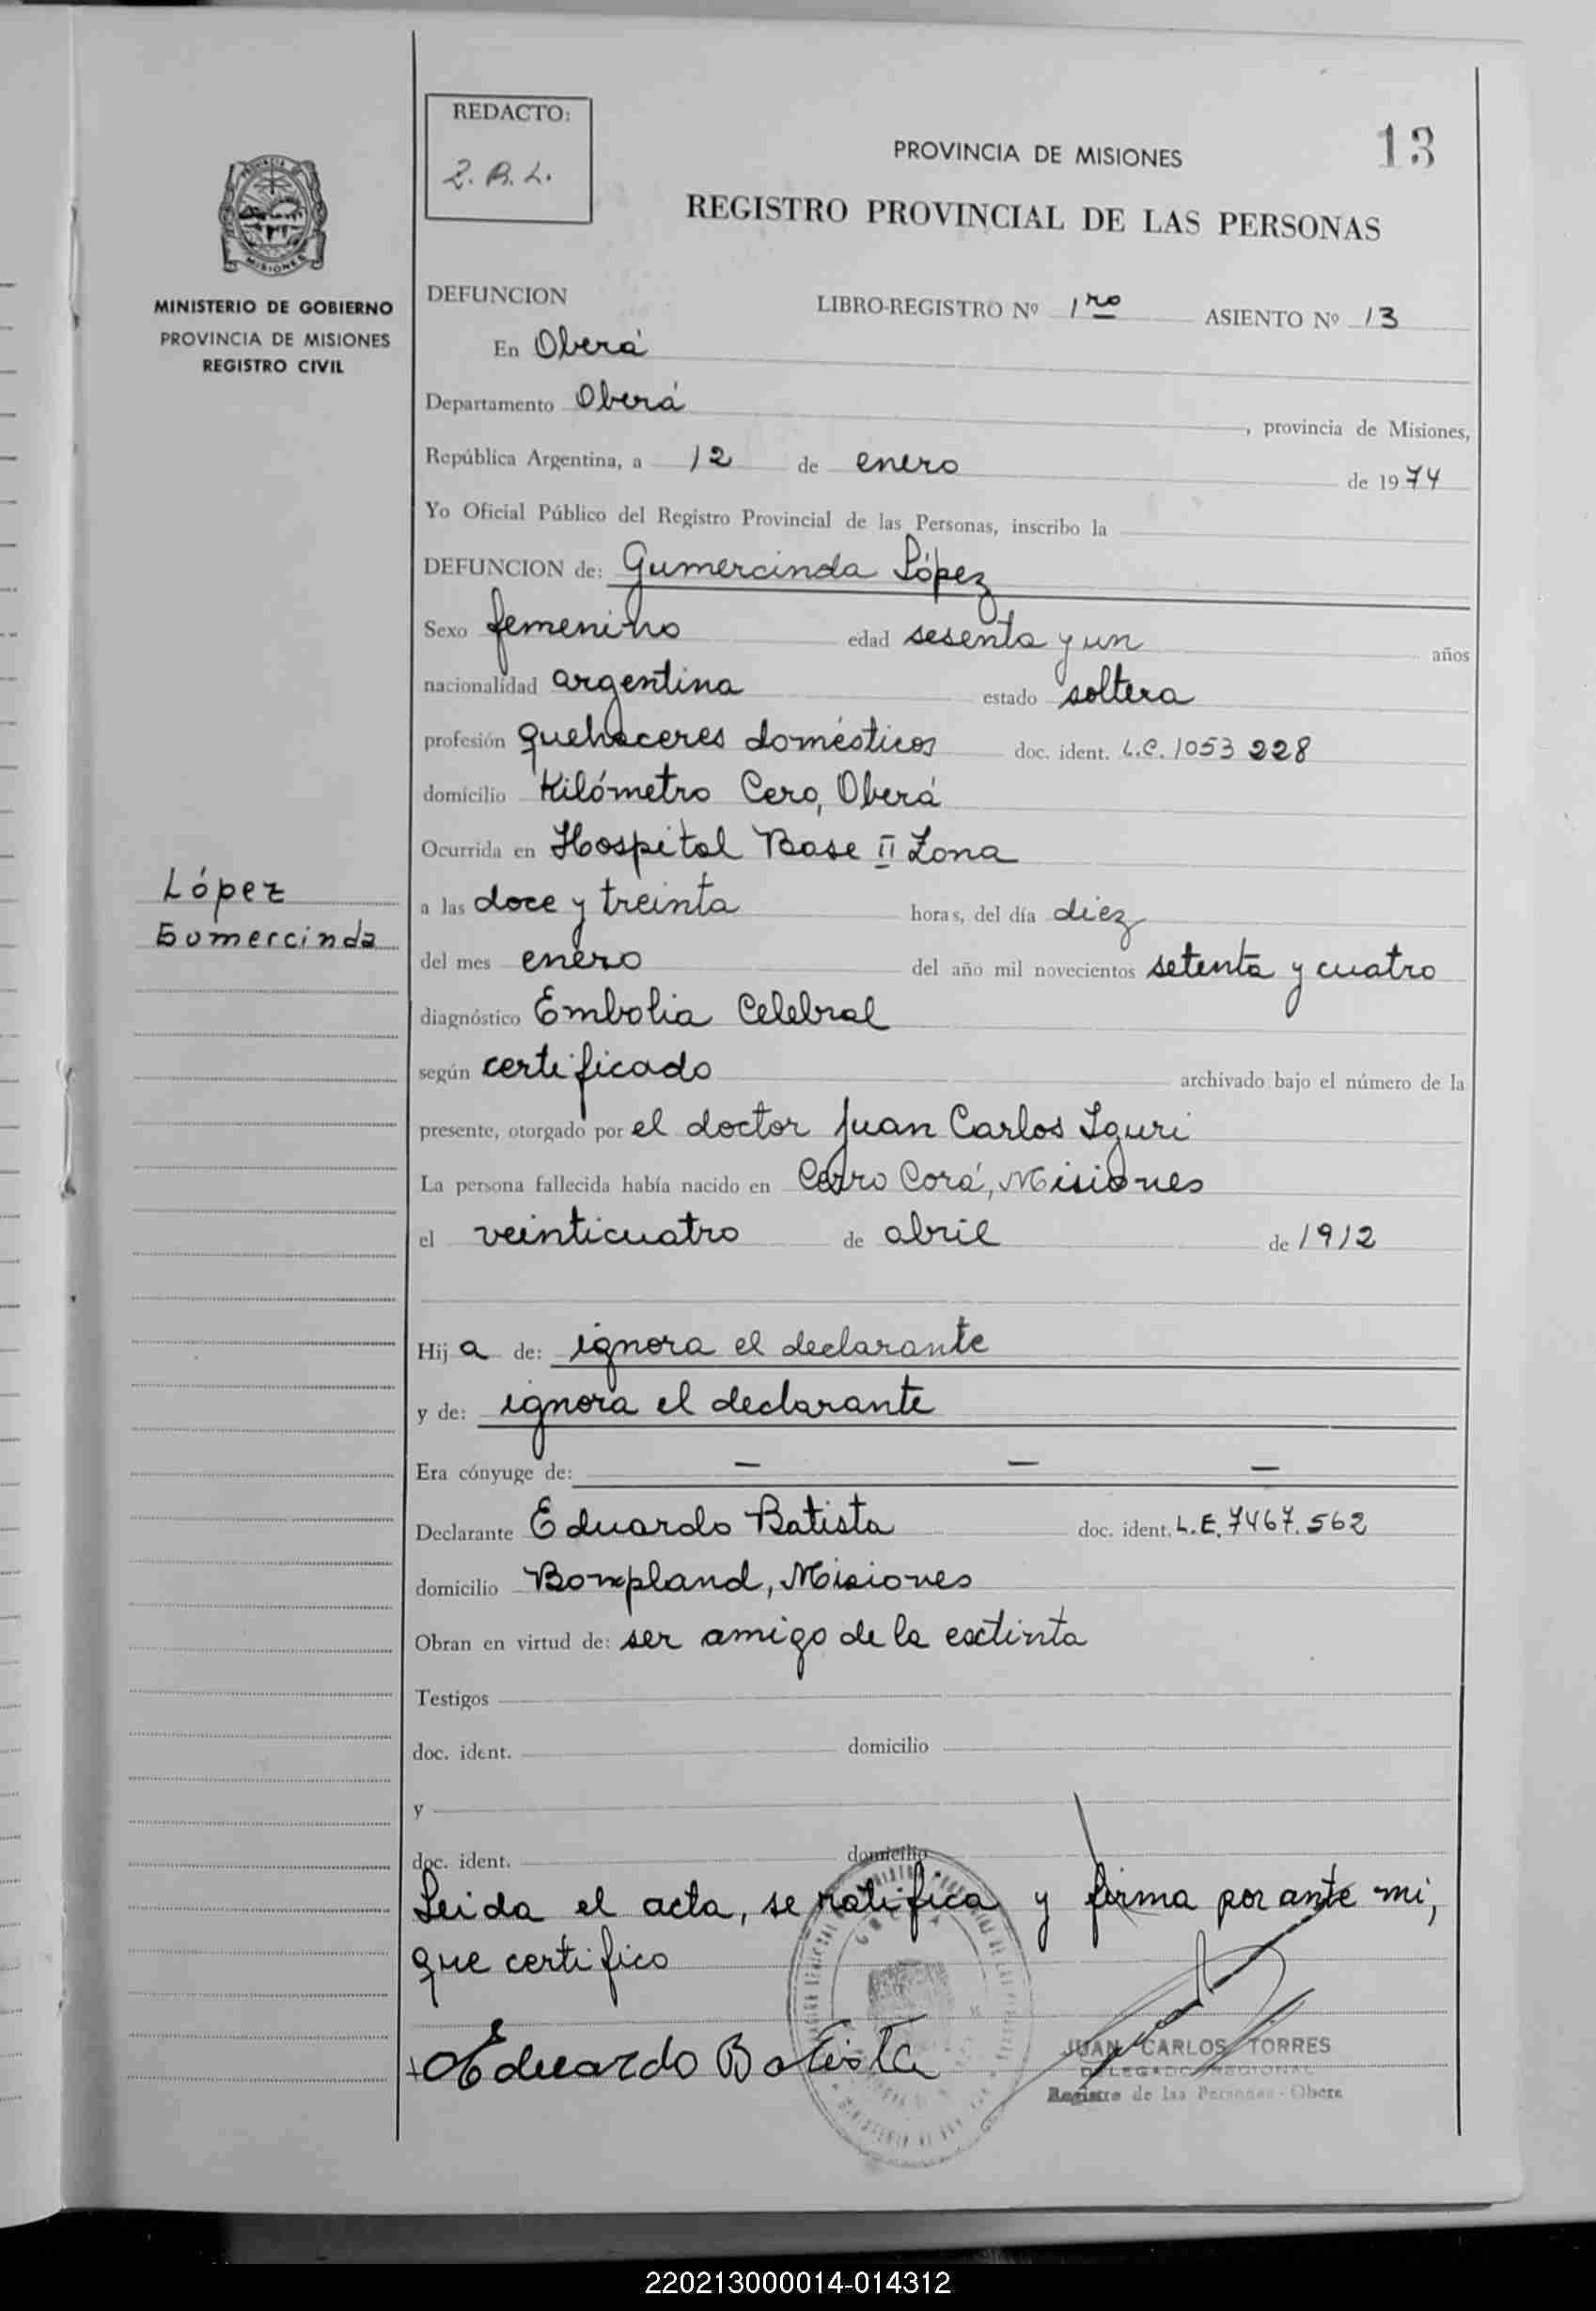 REDACTO:
Z. B. L.
PROVINCIA DE MISIONES
13
REGISTRO PROVINCIAL DE LAS PERSONAS
MISIONES
MINISTERIO DE GOBIERNO
PROVINCIA DE MISIONES
REGISTRO CIVIL
DEFUNCION LIBRO-REGISTRO Nº 1ro ASIENTO Nº 13
En Oberá
Departamento Oberá , provincia de Misiones,
República Argentina, a 12 de enero de 1974
Yo Oficial Público del Registro Provincial de las Personas, inscribo la
DEFUNCION de: Gumercinda López
Sexo femenino edad sesenta y un años
nacionalidad argentina estado soltera
profesión quehaceres domésticos doc. ident. L.C. 1053 228
domicilio Kilómetro Cero, Oberá
Ocurrida en Hospital Base II Zona
López
Gumercinda
a las doce y treinta horas, del día diez
del mes enero del año mil novecientos setenta y cuatro
diagnóstico Embolia Celebral
según certificado archivado bajo el número de la
presente, otorgado por el doctor Juan Carlos Iguri
La persona fallecida había nacido en Cerro Corá, Misiones
el veinticuatro de abril de 1912
Hij a de: ignora el declarante
y de: ignora el declarante
Era cónyuge de: — — —
Declarante Eduardo Batista doc. ident. L.E. 7467.562
domicilio Bompland, Misiones
Obran en virtud de: ser amigo de la extinta
Testigos
doc. ident. domicilio
y
doc. ident. domicilio
Leida el acta, se ratifica y firma por ante mi,
que certifico
Eduardo Batista
JUAN CARLOS TORRES
DELEGADO REGIONAL
Registro de las Personas - Obera
220213000014-014312